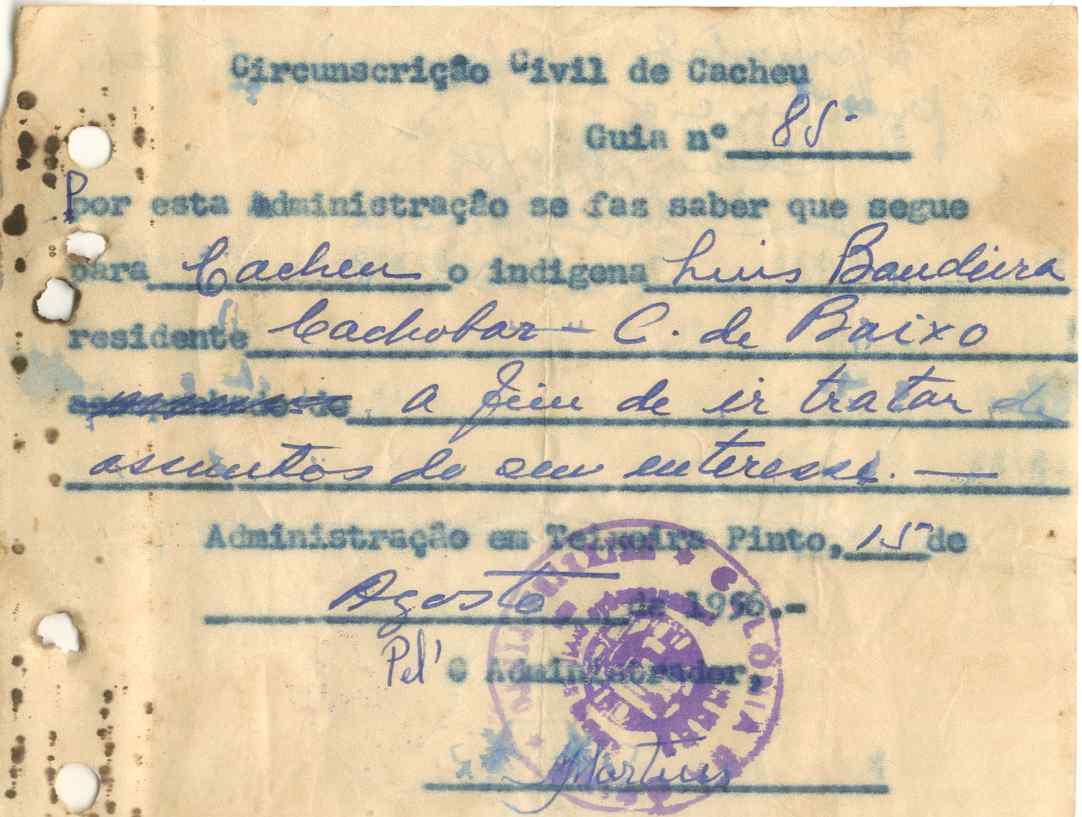 Circunscrição Civil de Cacheu
Guia nº 85
Por esta Administração se faz saber que segue
para Cacheu o indigena Luis Bandeira
residente Cachobar - C. de Baixo
a fim de ir tratar de
assuntos do seu enteresse. —
Administração em Teixeira Pinto, 15 de
Agosto de 1956.-
Pel' O Administrador,
Martins
COLÓNIA